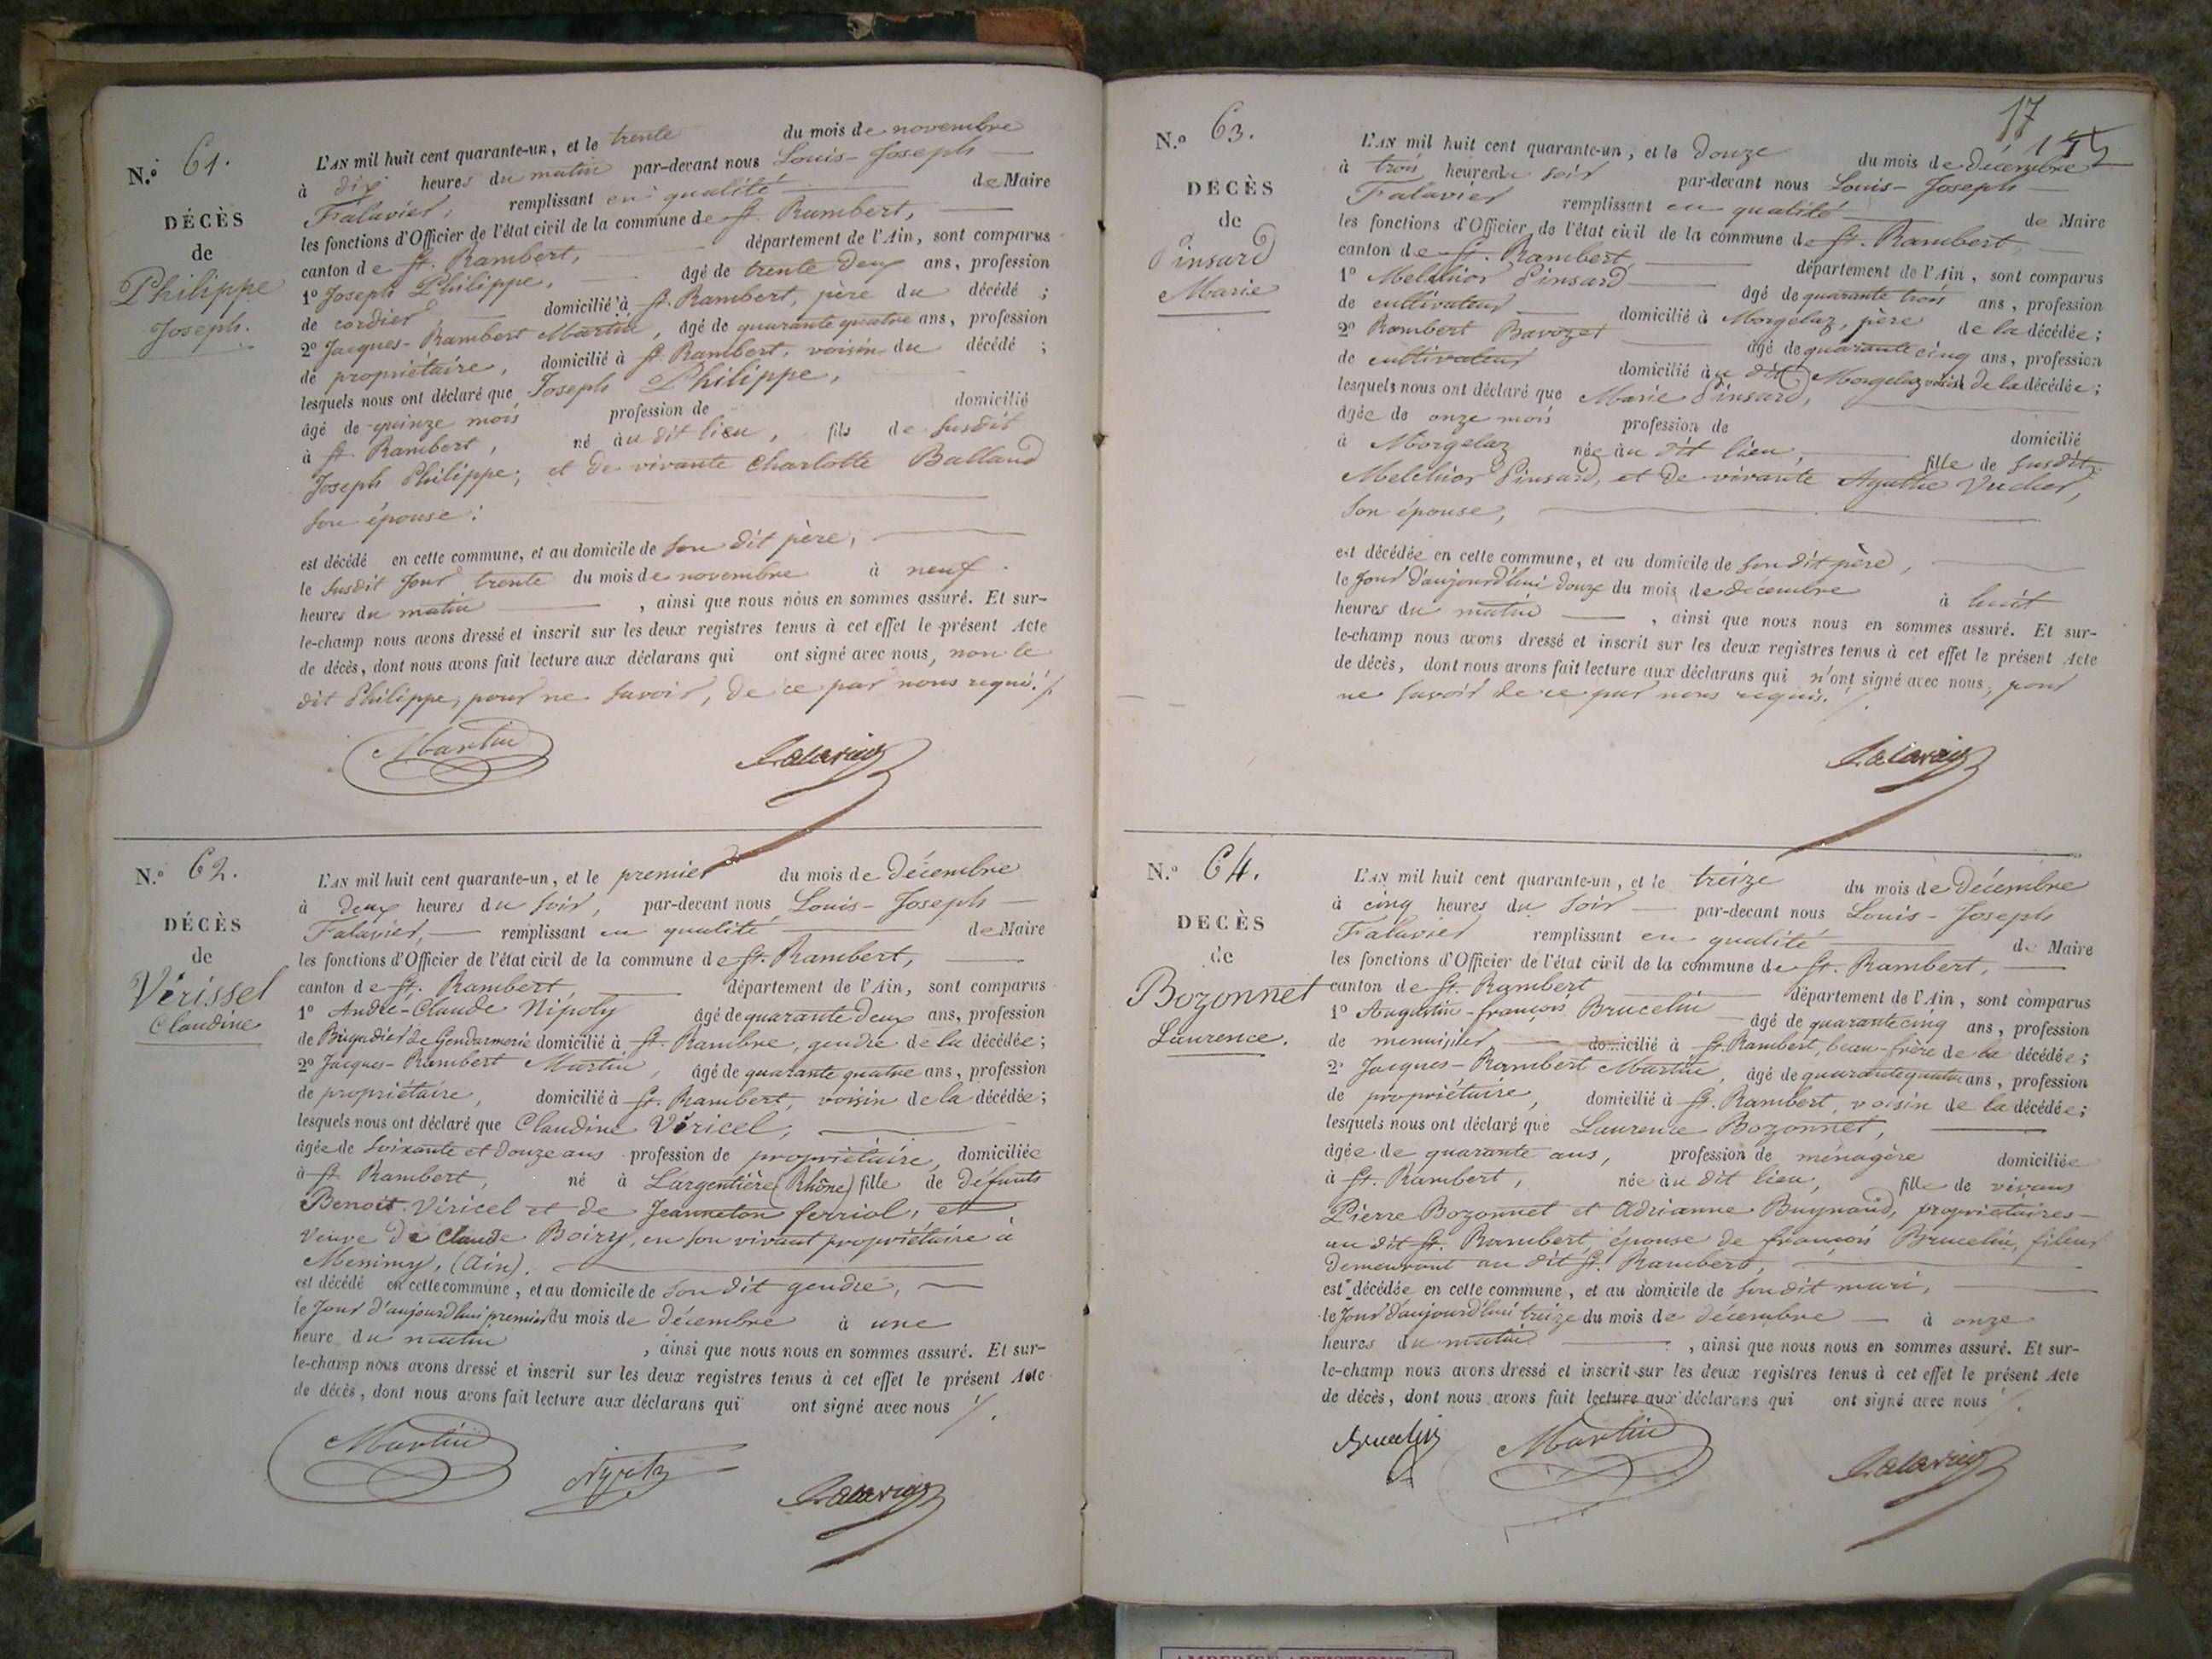 N.º 61.
DÉCÈS
de
Philippe
Joseph.
L'AN mil huit cent quarante-un, et le trente du mois de novembre
à dix heures du matin par-devant nous Louis-Joseph
Falavier, remplissant en qualité de Maire
les fonctions d'Officier de l'état civil de la commune de St. Rambert,
canton de St. Rambert, département de l'Ain, sont comparus
1º Joseph Philippe, âgé de trente deux ans, profession
de cordier, domicilié à St. Rambert, père du décédé ;
2º Jacques-Rambert Martin, âgé de quarante quatre ans, profession
de propriétaire, domicilié à St. Rambert, voisin du décédé ;
lesquels nous ont déclaré que Joseph Philippe,
âgé de quinze mois profession de domicilié
à St Rambert, né au dit lieu, fils de susdit
Joseph Philippe, et de vivante Charlotte Balland
son épouse :
est décédé en cette commune, et au domicile de son dit père,
le susdit jour trente du mois de novembre à neuf
heures du matin , ainsi que nous nous en sommes assuré. Et sur-
le-champ nous avons dressé et inscrit sur les deux registres tenus à cet effet le présent Acte
de décès, dont nous avons fait lecture aux déclarans qui ont signé avec nous, non le
dit Philippe, pour ne savoir, de ce par nous requi. /.
Martin Falavier
N.º 62.
DÉCÈS
de
Vérissel
Claudine
L'AN mil huit cent quarante-un, et le premier du mois de décembre
à deux heures du soir, par-devant nous Louis-Joseph
Falavier, remplissant en qualité de Maire
les fonctions d'Officier de l'état civil de la commune de St. Rambert,
canton de St. Rambert, département de l'Ain, sont comparus
1º André-Claude Nipoly âgé de quarante deux ans, profession
de Brigadier de Gendarmerie domicilié à St. Rambre, gendre de la décédée ;
2º Jacques-Rambert Martin, âgé de quarante quatre ans, profession
de propriétaire, domicilié à St. Rambert, voisin de la décédée ;
lesquels nous ont déclaré que Claudine Véricel,
âgée de soixante et douze ans profession de propriétaire, domiciliée
à St Rambert, né à Largentière (Rhône) fille de défunts
Benoit Véricel et de Jeanneton ferriol, et
veuve de Claude Boiry, en son vivant propriétaire à
Messimy, (Ain).
est décédé en cette commune, et au domicile de son dit gendre,
le jour d'aujourd'hui premier du mois de décembre à une
heure du matin , ainsi que nous nous en sommes assuré. Et sur-
le-champ nous avons dressé et inscrit sur les deux registres tenus à cet effet le présent Acte
de décès, dont nous avons fait lecture aux déclarans qui ont signé avec nous /.
Martin Nipoly Falavier
17
N.º 63.
DECÈS
de
Pinsard
Marie
L'AN mil huit cent quarante-un, et le douze du mois de décembre
à trois heures du soir par-devant nous Louis-Joseph
Falavier remplissant en qualité de Maire
les fonctions d'Officier de l'état civil de la commune de St. Rambert,
canton de St. Rambert, département de l'Ain, sont comparus
1º Melchior Pinsard âgé de quarante trois ans, profession
de cultivateur domicilié à Morgelaz, père de la décédée ;
2º Rambert Bavozet âgé de quarante cinq ans, profession
de cultivateur domicilié au dit Morgelaz voisin de la décédée ;
lesquels nous ont déclaré que Marie Pinsard,
âgée de onze mois profession de domicilié
à Morgelaz née au dit lieu, fille de susdit
Melchior Pinsard, et de vivante Agathe Vucher,
son épouse,
est décédée en cette commune, et au domicile de son dit père,
le jour d'aujourd'hui douze du mois de décembre à huit
heures du matin , ainsi que nous nous en sommes assuré. Et sur-
le-champ nous avons dressé et inscrit sur les deux registres tenus à cet effet le présent Acte
de décès, dont nous avons fait lecture aux déclarans qui n'ont signé avec nous, pour
ne savoir de ce par nous requis. /.
Falavier
N.º 64.
DECÈS
de
Bozonnet
Laurence.
L'AN mil huit cent quarante-un, et le treize du mois de décembre
à cinq heures du soir par-devant nous Louis-Joseph
Falavier remplissant en qualité de Maire
les fonctions d'Officier de l'état civil de la commune de St. Rambert,
canton de St. Rambert département de l'Ain, sont comparus
1º Augustin-françois Brucelin âgé de quarante cinq ans, profession
de menuisier domicilié à St. Rambert, beau-frère de la décédée ;
2º Jacques-Rambert Martin, âgé de quarante quatre ans, profession
de propriétaire, domicilié à St. Rambert, voisin de la décédée ;
lesquels nous ont déclaré que Laurence Bozonnet,
âgée de quarante ans, profession de ménagère domiciliée
à St. Rambert, née au dit lieu, fille de vivans
Pierre Bozonnet et Adrianne Buynand, propriétaires
au dit St. Rambert épouse de françois Brucelin, fileur
demeurant au dit St. Rambert,
est décédée en cette commune, et au domicile de son dit mari,
le jour d'aujourd'hui treize du mois de décembre à onze
heures du matin , ainsi que nous nous en sommes assuré. Et sur-
le-champ nous avons dressé et inscrit sur les deux registres tenus à cet effet le présent Acte
de décès, dont nous avons fait lecture aux déclarans qui ont signé avec nous /.
Brucelin Martin Falavier